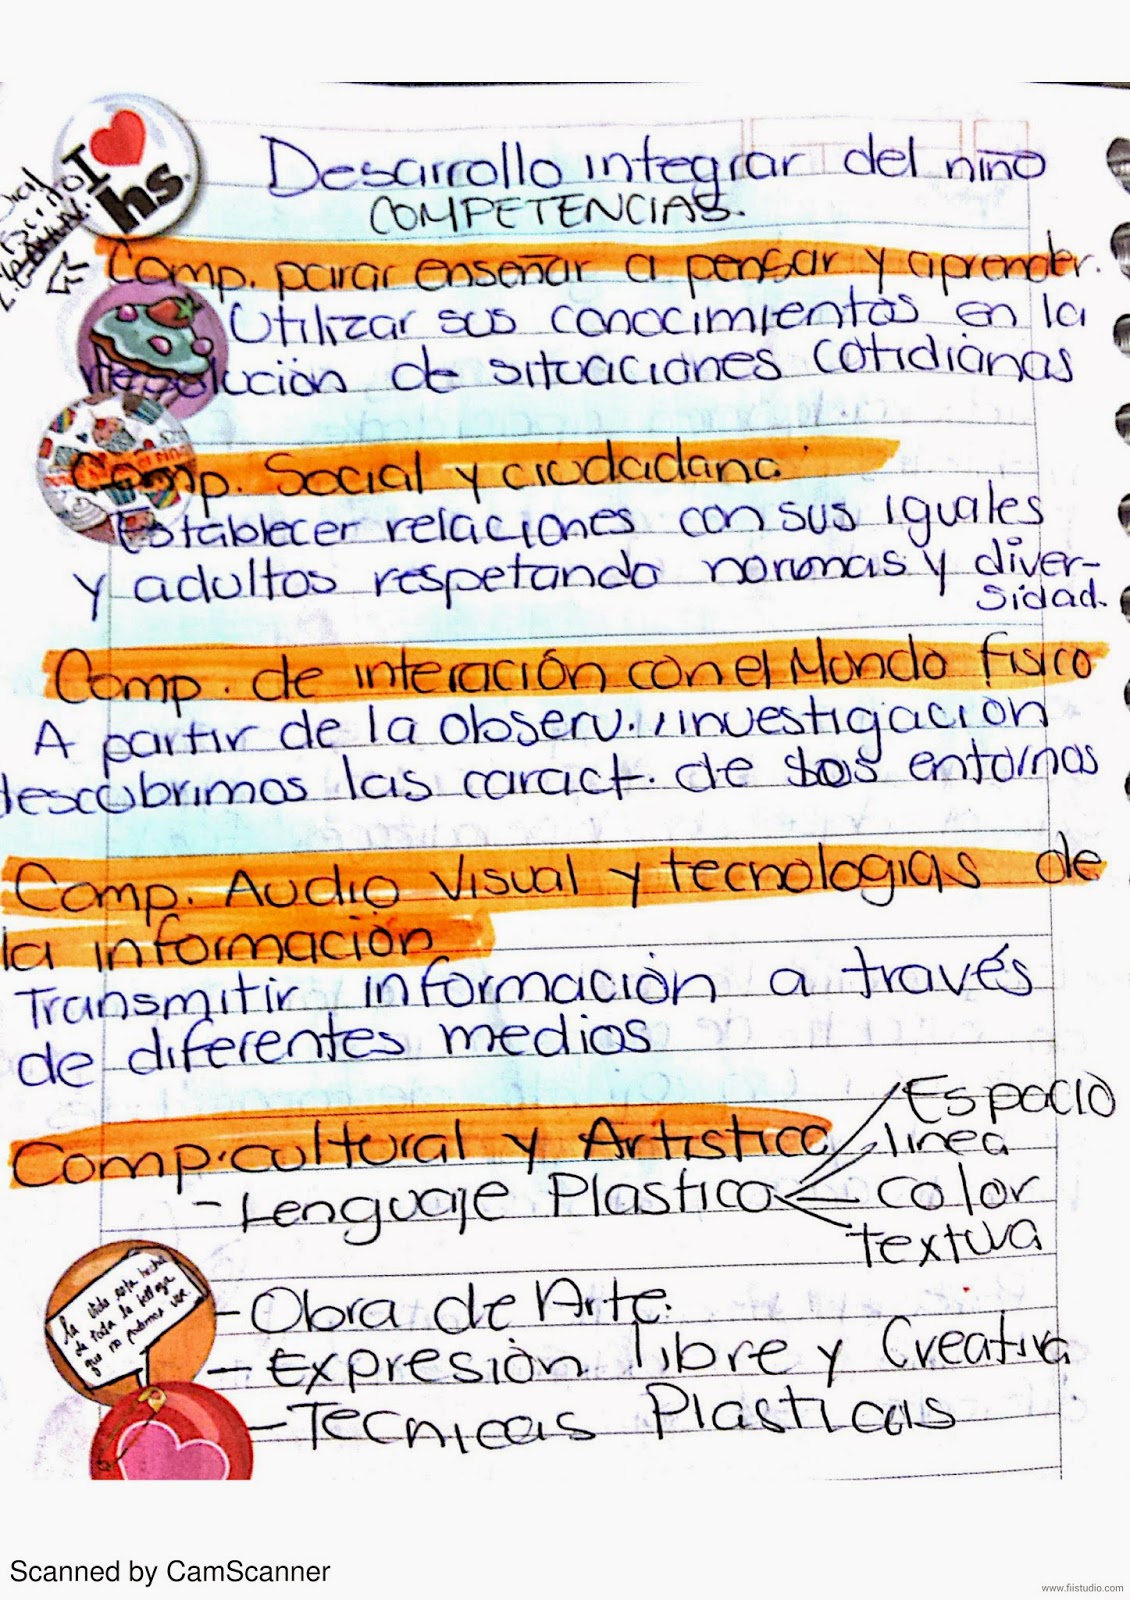 I hs.
Desarrollo integrar del niño
COMPETENCIAS.
Comp. parar enseñar a pensar y aprender.
Utilizar sus conocimientos en la
resolución de situaciones cotidianas
Comp. Social y ciudadana
Establecer relaciones con sus iguales
y adultos respetando normas y diver-
sidad.
Comp. de interación con el Mundo fisico
A partir de la observ., investigación
descubrimos las caract. de los entornos
Comp. Audio Visual y tecnologias de
la información
Transmitir información a través
de diferentes medios
Comp. cultural y Artistica
- Lenguaje Plastico
Espacio
linea
color
textura
- Obra de Arte.
- Expresión libre y Creativa
- Tecnicas Plasticas
la vida esta hecha
de toda la belleza
que no podamos ver.
Scanned by CamScanner
www.fiistudio.com